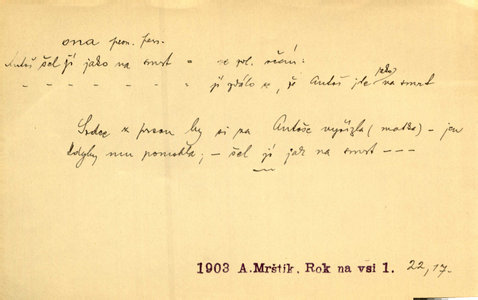 ona pron. pers.
Antoš šel jí jako na smrt =
- - - - - - - jí zdálo se, že Antoš jde jako na smrt
Srdce z prsou by si za Antoše vyřízla (matka) - jen
kdyby mu pomohla; - šel jí jak na smrt - - -
1903 A. Mrštík, Rok na vsi 1. 22,17.